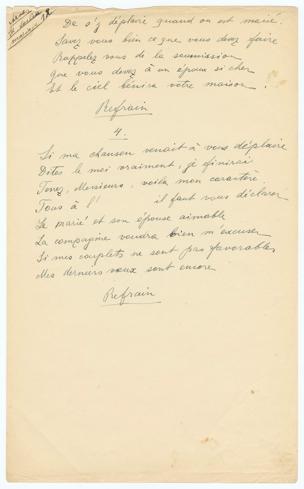 De s'y déplaire quand on est marié.
Savez vous bien ce que vous devez faire
Rappelez vous de la soumission
Que vous devez à un époux si cher
Et le ciel bénira votre maison.
Refrain
4.
Si ma chanson venait à vous déplaire
Dites le moi vraiment, je finirai
Tenez, Messieurs, voila mon caractère
Tous à l' il faut vous déclarer
Le marié et son épouse aimable
La compagnie voudra bien m'excuser
Si mes couplets ne sont pas favorables
Mes derniers vœux sont encore
Refrain